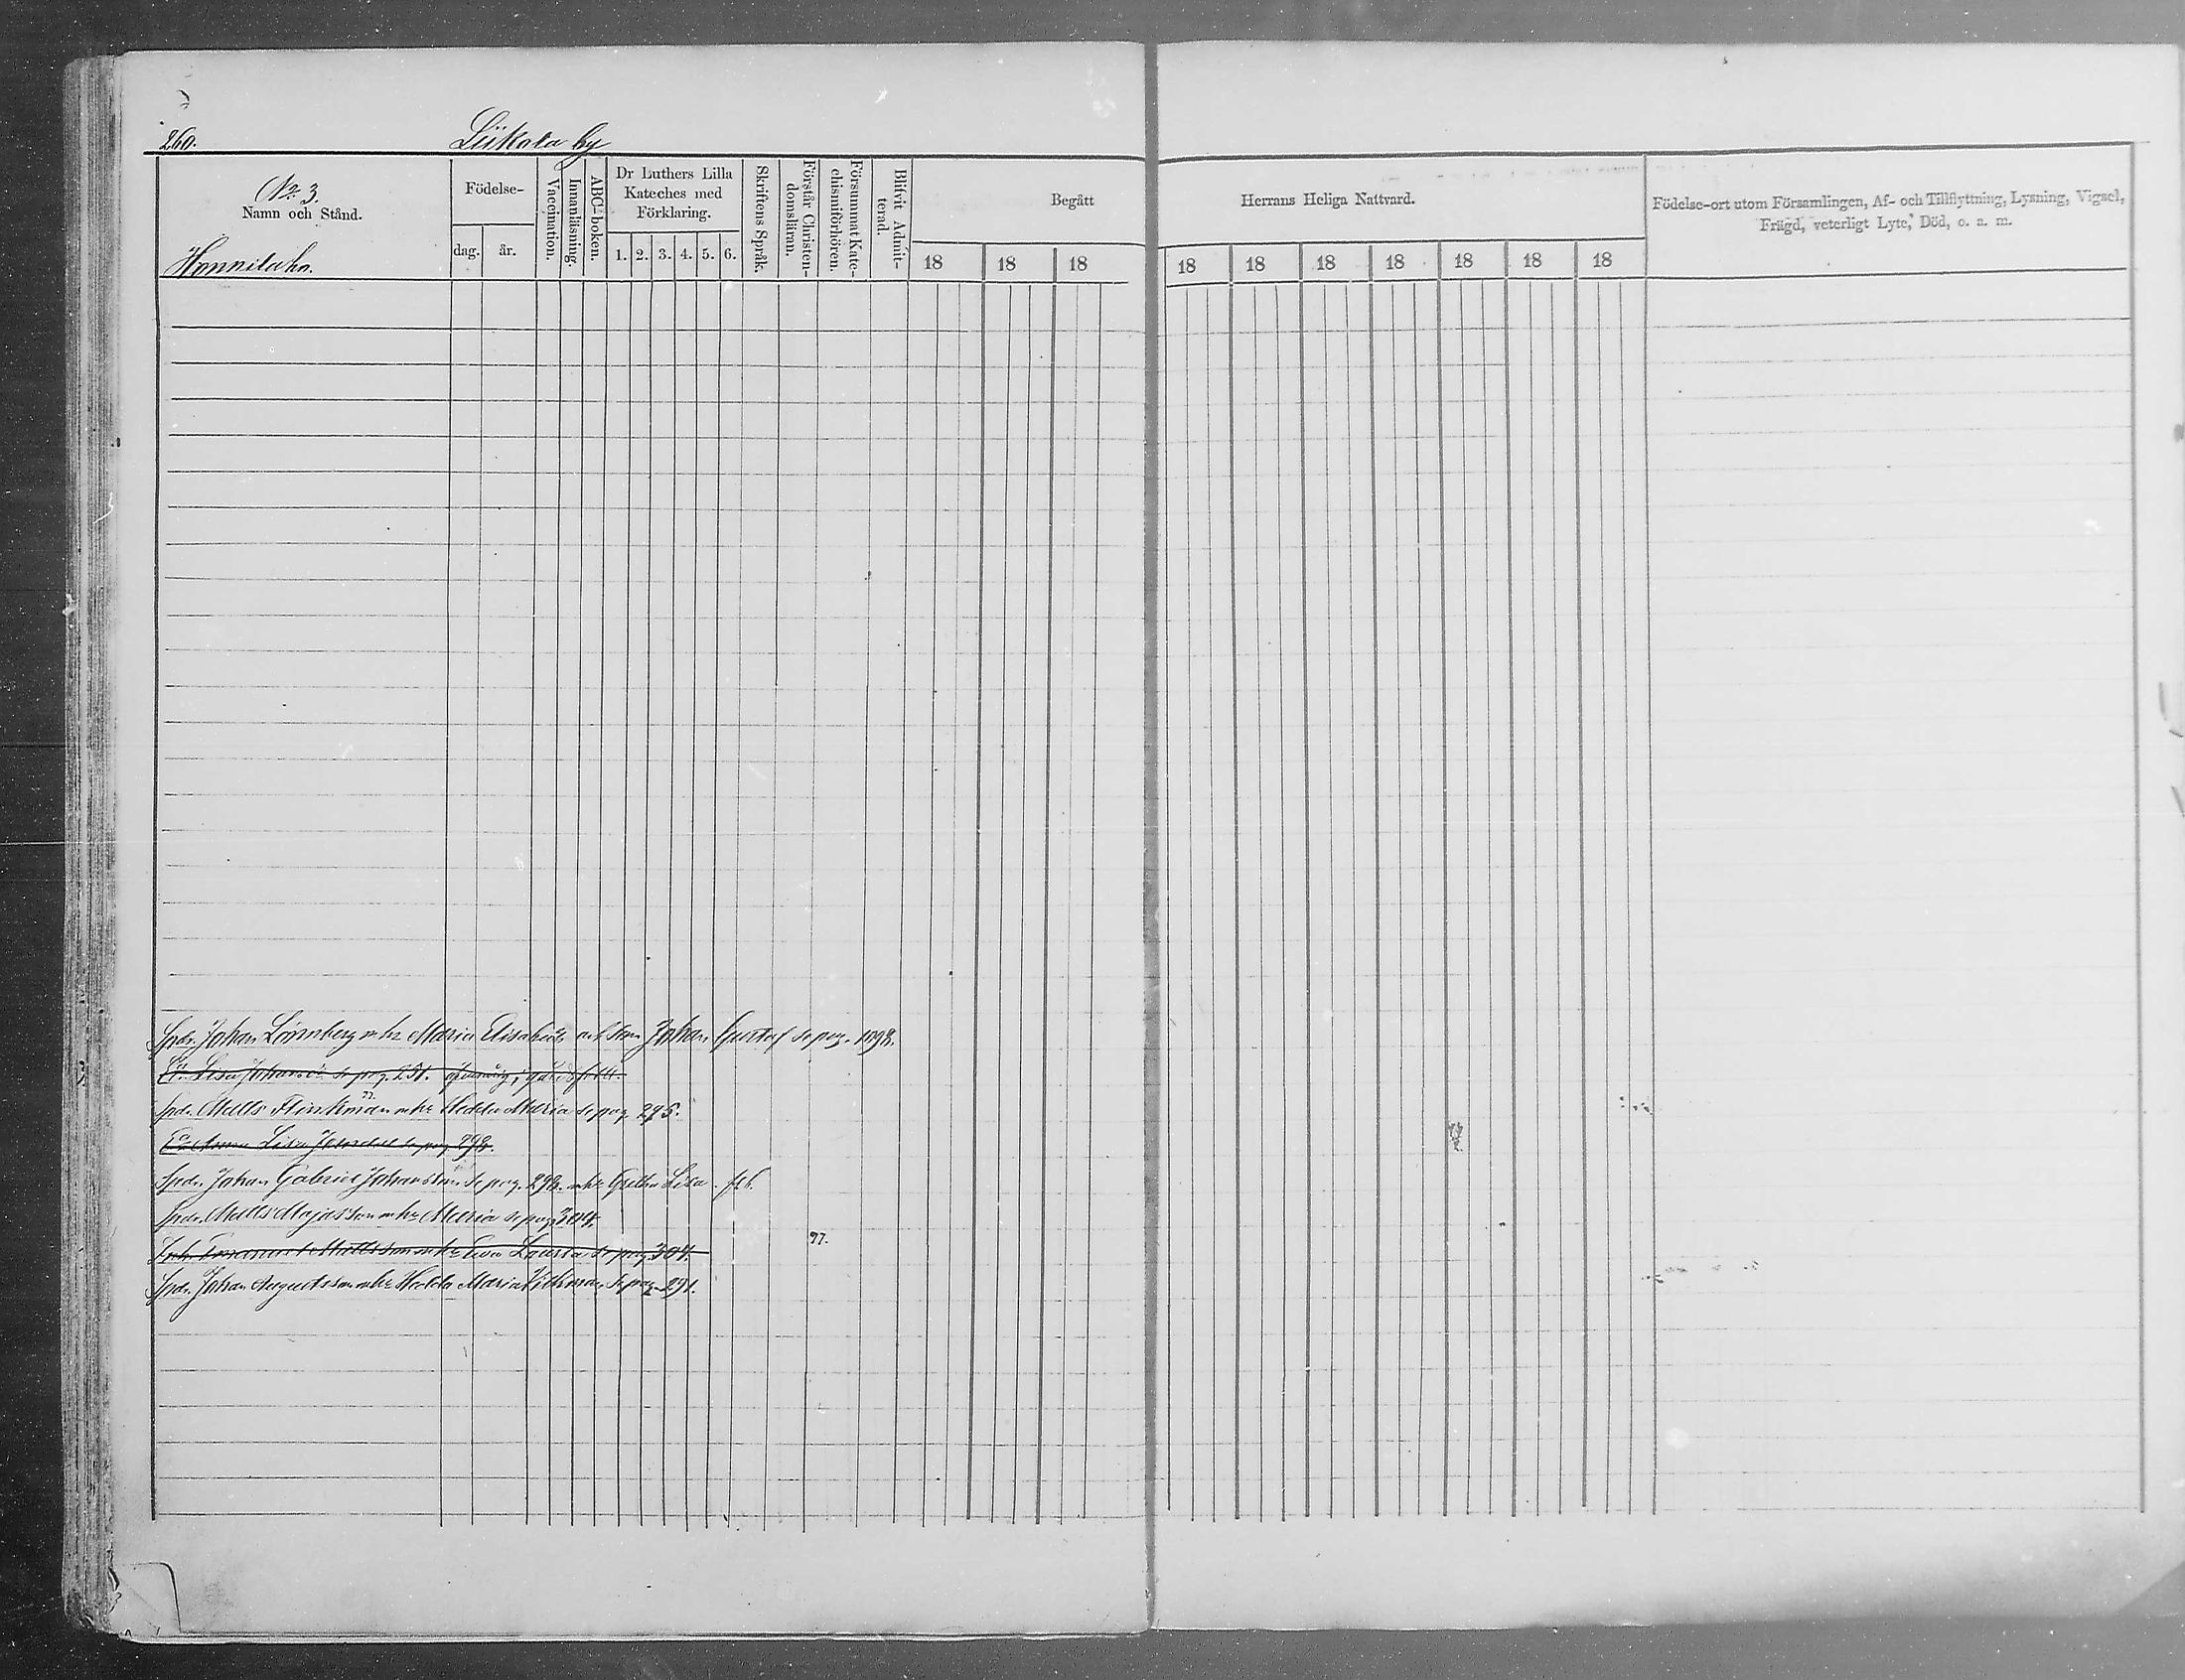 260.
Liikola by
No 3.
Namn och Stånd.
Honnilaho.
Födelse-
dag. år.
Vaccination.
Innanläsning.
ABC-boken.
Dr Luthers Lilla
Kateches med
Förklaring.
1. 2. 3. 4. 5. 6.
Skriftens Språk.
Förstår Christen-
domsläran.
Försummat Kate-
chismiförhören.
Blifvit Admit-
terad.
Begått
18 18 18
Herrans Heliga Nattvard.
18 18 18 18 18 18 18
Födelse-ort utom Församlingen, Af- och Tillflyttning, Lysning, Vigsel,
Frägd, veterligt Lyte, Död, o. a. m.
Johan Lönnberg Maria Elisabeth Johan Gustaf se pag.
Lisa se pag. 251.
Matts Flinkman Hedda Maria se pag. 295.
Anna Lisa se pag. 292.
Johan Gabriel Johansson se pag. 292. Gretha Lisa
Matts Majasson Maria se pag. 304.
Emanuel Mattsson Eva Lovisa se pag. 304.
97.
Johan Augustsson Hedda Maria se pag. 291.